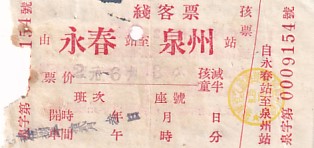 綫客票
孩票
由永春站至泉州站
票价 孩童減半
班次 座號
開時 年 月 日
車間 午 時 分
154號
泉字第
自永春站至泉州站
泉字第0009154號